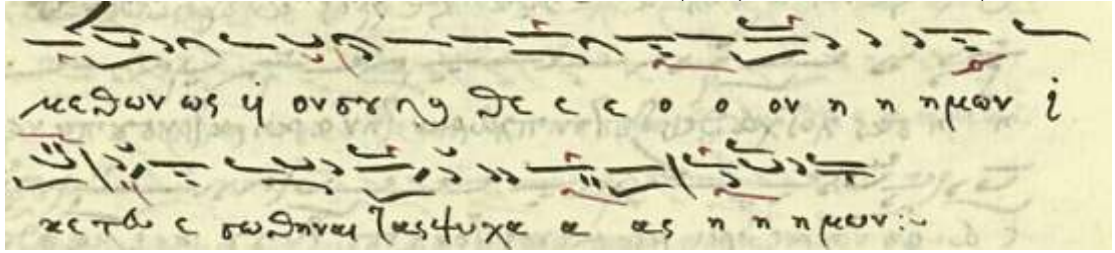 μεθων ως ϋ ον σου ϗ θε ε ε ο ο ον η η ημων ϊ
κε τευ ε σωθηναι τας ψυχα α ας η η ημων:~